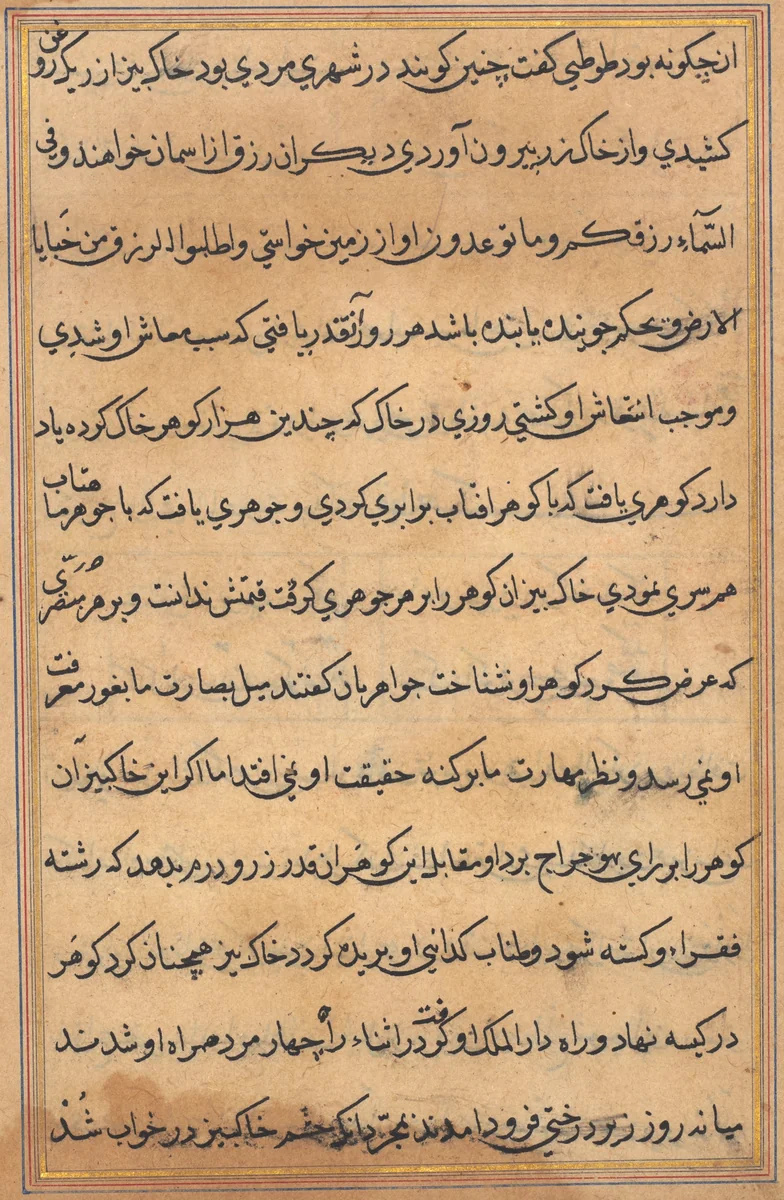 ان چکونه بود طوطی کفت چنین کویند در شهری مردی بود خاک بیز از ریک روغن
کشیدی و از خاک زر بیرون آوردی دیکران رزق از اسمان خواهند و فی
السّمآء رزقکم و ما توعدون او از زمین خواستی و اطلبوا الرزق من خَبایا
الارض و بحکم جوینده یابنده باشد هر روز آنقدر یافتی که سبب معاش او شدی
و موجب انتعاش او کشتی روزی در خاک که چندین هزار کوهر خاک کرده یاد
دارد کوهری یافت که با کوهر افتاب برابری کردی و جوهری یافت که با جوهر ماهتاب
همسری نمودی خاک بیز ان کوهر را بر هر جوهری کرفت قیمتش ندانست و بر هر مبصّری
که عرض کرد کوهر او نشناخت جواهریان کفتند میل بصارت ما بغور معرفت
او نمی رسد و نظر مهارت ما بر کنه حقیقت او نمی افتد اما اکر این خاکبیز آن
کوهر را بر رای بهوجراج برد او مقابله این کوهر ان قدر زر و درم بدهد که رشته
فقر او کسته شود و طناب کدائی او بریده کردد خاک بیز هیچنان کرد کوهَر
در کیسه نهاد و راه دار الملک او کرفت در اثناء راه چهار مرد همراه او شدند
میانه روز زیر درختی فرود امدند بمجرّد انکه چشم خاکبیز در خواب شُدْ